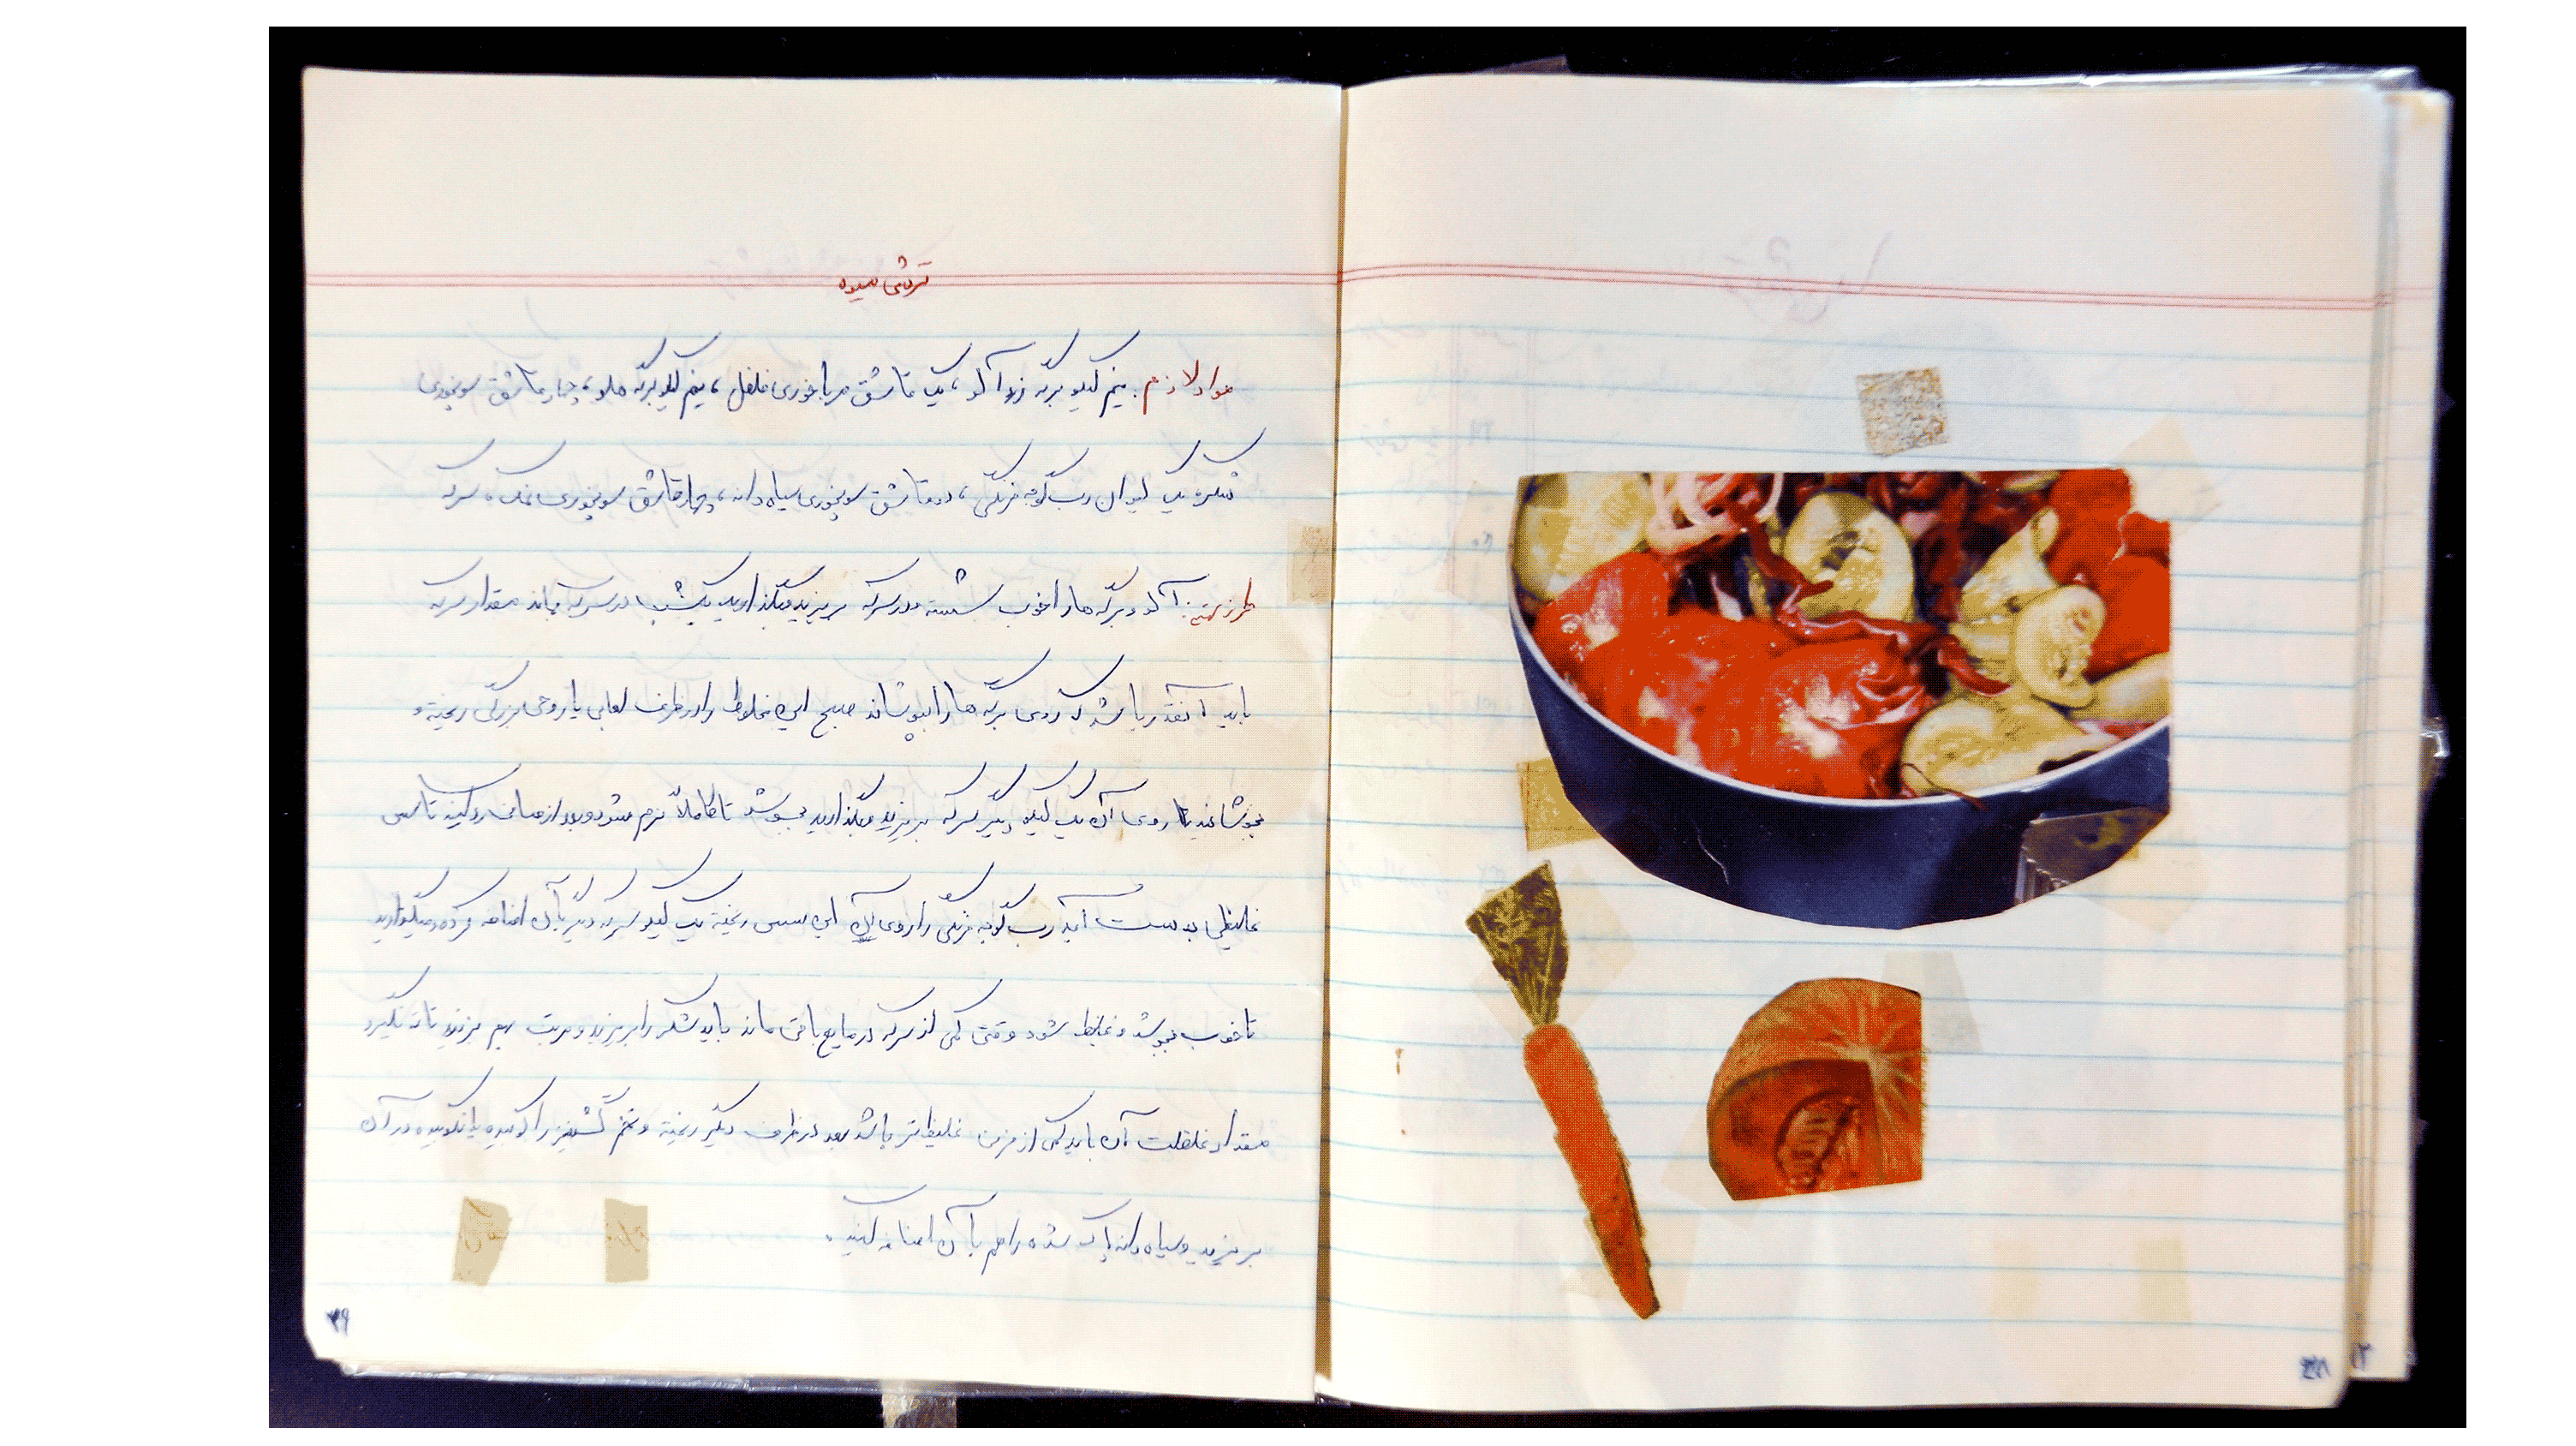 ترشی میوه
مواد لازم: نیم کیلو برگه زردآلو، یک قاشق مرباخوری فلفل، نیم کیلو برگه هلو، چهار قاشق سوپخوری
شکر، یک لیوان رب گوجه فرنگی، دو قاشق سوپخوری سیاه دانه، چهار قاشق سوپخوری نمک، سرکه
طرز تهیه: آلو و برگه ها را خوب شسته و در سرکه بریزید و بگذارید یک شب در سرکه بماند مقدار سرکه
باید آنقدر باشد که روی برگه ها را بپوشاند صبح این مخلوط را در ظرف لعابی یا روحی بزرگی ریخته و
بجوشانید تا روی آن یک کیلو دیگر سرکه بریزید و بگذارید بجوشد تا کاملاً نرم شود و بعد از صافی رد کنید تا سس
غلیظی بدست آید رب گوجه فرنگی را روی این سس ریخته یک کیلو سرکه دیگر بآن اضافه کرده و میگذارید
تا خوب بجوشد و غلیظ شود وقتی کمی از سرکه در مایع باقی ماند باید شکر را بریزید و مرتب بهم بزنید تا ته نگیرد
مقدار غلظت آن باید کمی از فرنی غلیظ تر باشد بعد در ظرف دیگر ریخته و تخم گشنیز را کوبیده یا نکوبیده در آن
بریزید و سیاه دانه پاک شده را هم بآن اضافه کنید.
۴۹
۴۸